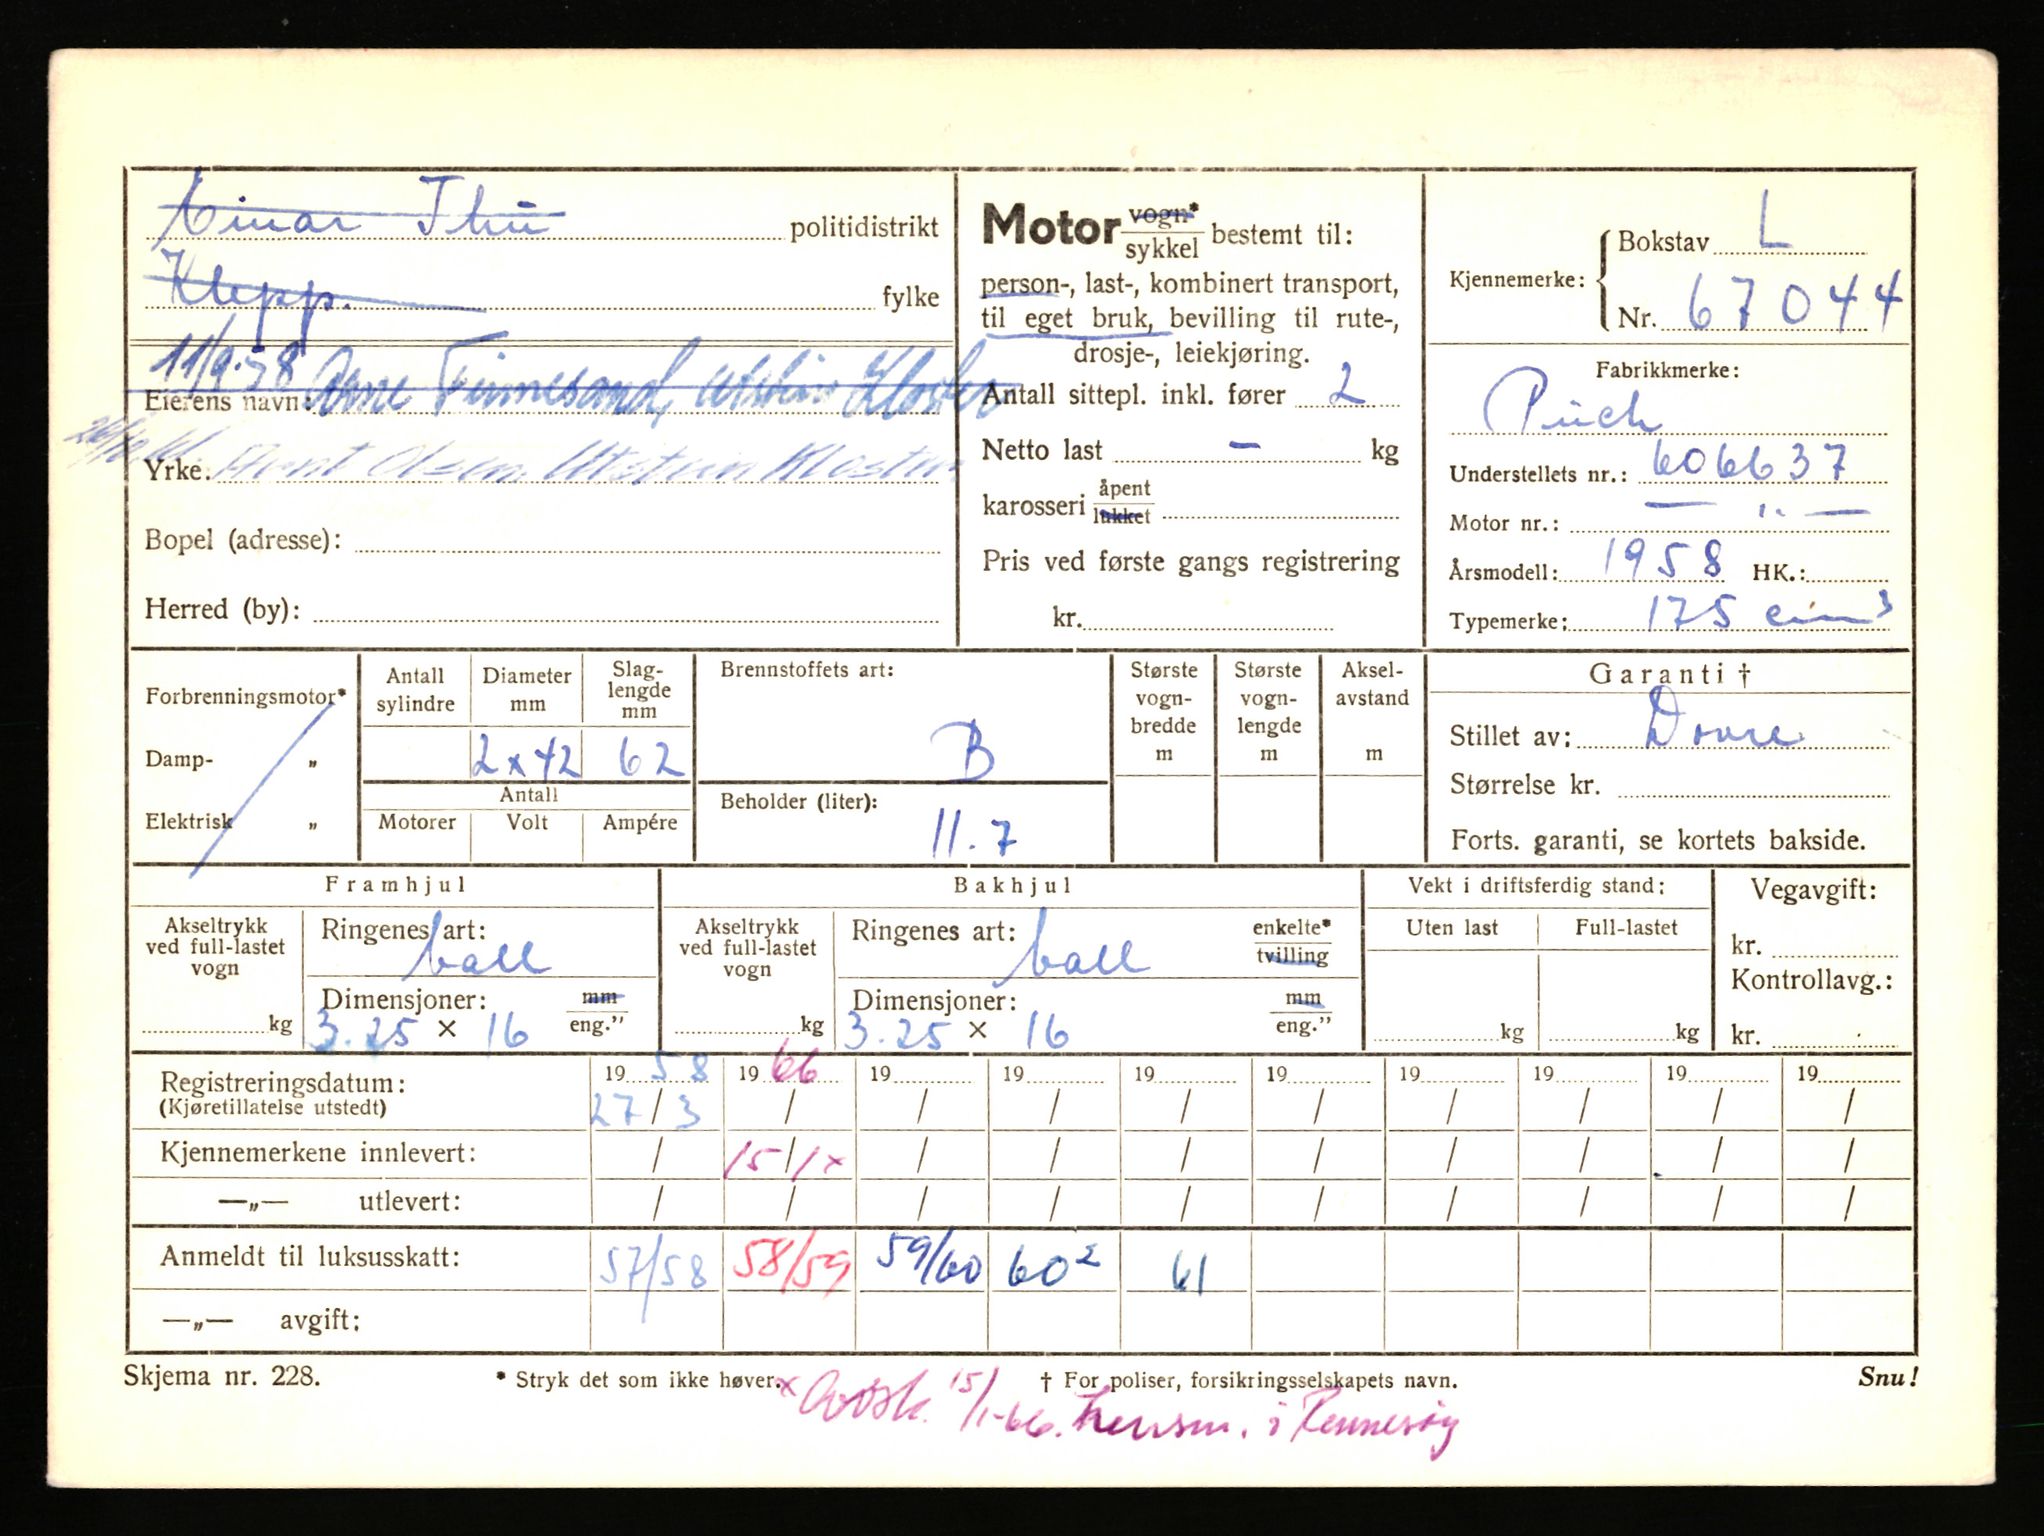 Einar Thu politidistrikt
Klepp. fylke
11/9-58 Arne Finnesand, Utstein Kloster
Eierens navn:
Yrke: Arnt Olsen, Utstein Kloster
Bopel (adresse):
Herred (by):
Motor vogn* sykkel bestemt til:
person-, last-, kombinert transport,
til eget bruk, bevilling til rute-,
drosje-, leiekjøring.
Antall sittepl. inkl. fører 2
Netto last – kg
karosseri åpent lukket
Pris ved første gangs registrering
kr.
Kjennemerke: Bokstav L
Nr. 67044
Fabrikkmerke:
Puch
Understellets nr.: 606637
Motor nr.: — " —
Årsmodell: 1958 HK.:
Typemerke: 175 ccm3
Forbrenningsmotor*
Damp- „
Elektrisk „
Antall sylindre Diameter mm Slag-lengde mm
2x42 62
Antall
Motorer Volt Ampére
Brennstoffets art:
B
Beholder (liter):
11.7
Største vogn-bredde m
Største vogn-lengde m
Aksel-avstand m
Garanti †
Stillet av: Dovre
Størrelse kr.
Forts. garanti, se kortets bakside.
Framhjul
Akseltrykk ved full-lastet vogn kg
Ringenes art: ball
Dimensjoner: mm eng.”
3.25 × 16
Bakhjul
Akseltrykk ved full-lastet vogn kg
Ringenes art: ball enkelte* tvilling
Dimensjoner: mm eng.”
3.25 × 16
Vekt i driftsferdig stand:
Uten last Full-lastet
kg kg
Vegavgift:
kr.
Kontrollavg.:
kr.
19 58 19 66 19 19 19 19 19 19 19 19
Registreringsdatum:
(Kjøretillatelse utstedt) 27/3 / / / / / / / / /
Kjennemerkene innlevert: / 15/1x / / / / / / / /
—„— utlevert: / / / / / / / / / /
Anmeldt til luksusskatt: 57/58 58/59 59/60 60² 61
—„— avgift:
Skjema nr. 228.
* Stryk det som ikke høver.
† For poliser, forsikringsselskapets navn.
Snu!
x Avsk. 15/1-66. Lensm. i Rennesøy